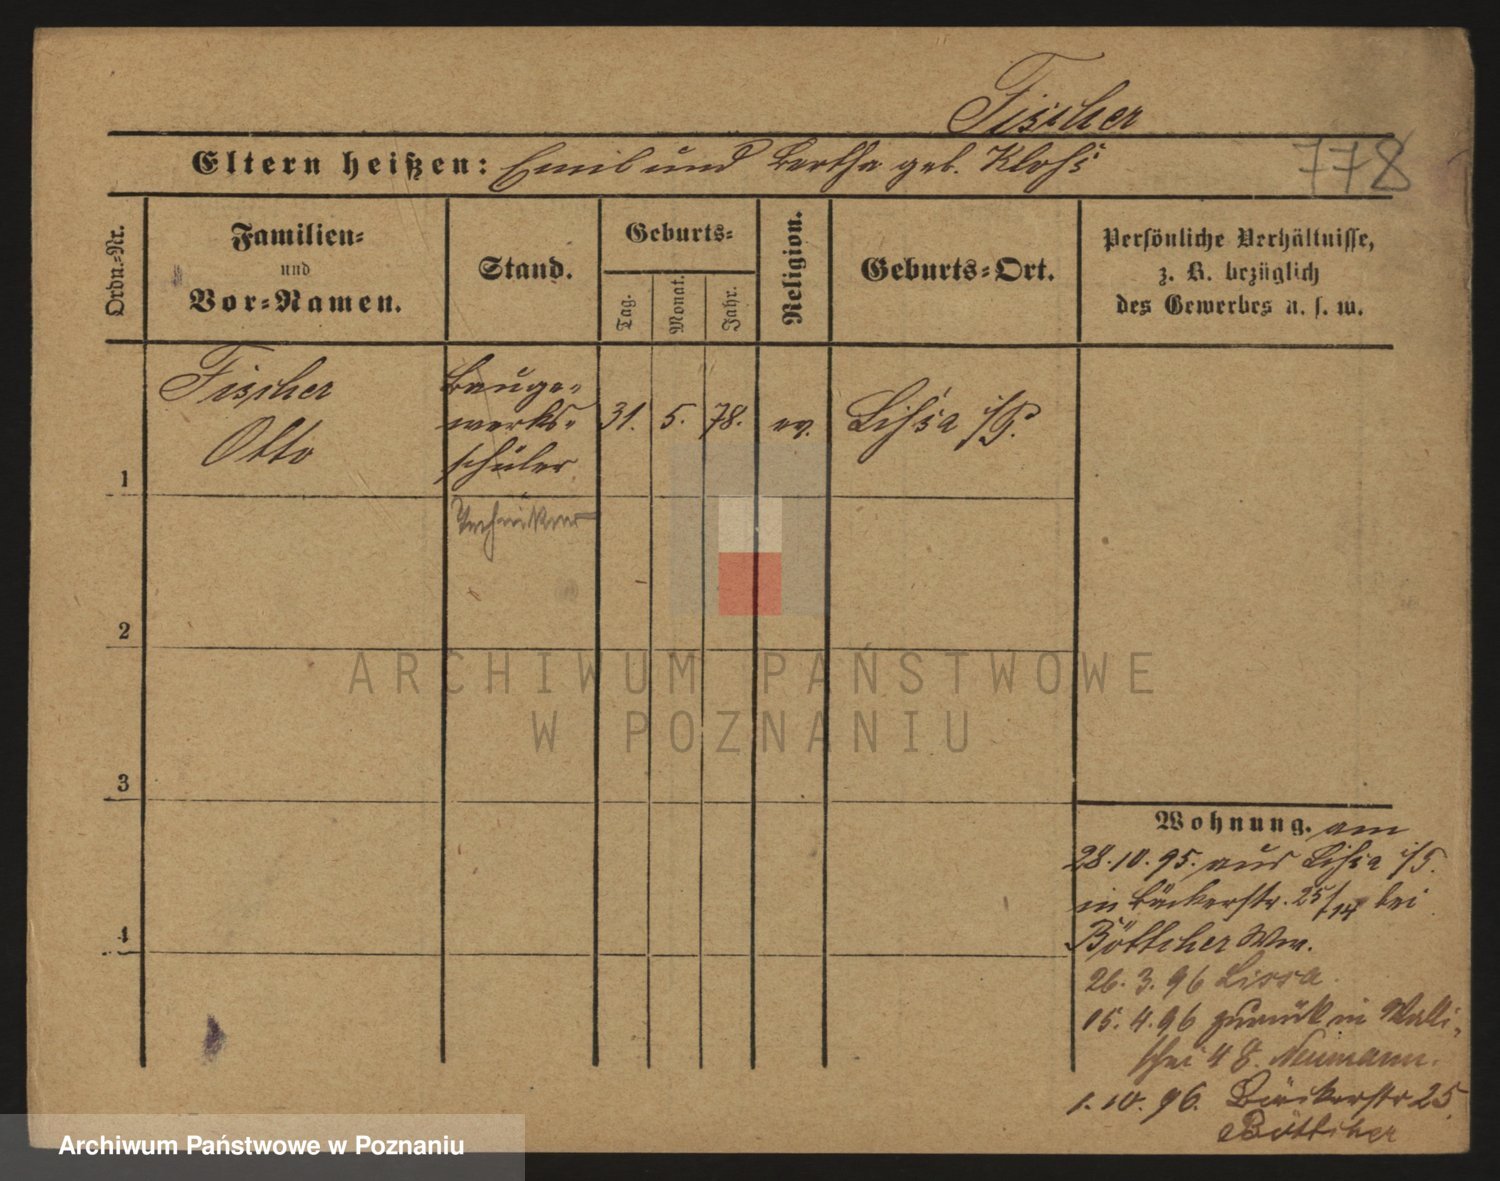 Fischer
Eltern heißen: Emil und Bertha geb. Klohs
778
Ordn.-Nr.
Familien-
und
Vor-Namen.
Stand.
Geburts-
Tag.
Monat.
Jahr.
Religion.
Geburts-Ort.
Persönliche Verhältnisse,
z. B. bezüglich
des Gewerbes u. s. w.
1
Fischer
Otto
Bauge-
werks-
schüler
31. 5. 78. ev. Lissa i/P.
Techniker
2
3
4
ARCHIWUM PAŃSTWOWE
W POZNANIU
Wohnung. am
28.10.95. aus Lissa i/P.
in Bäckerstr. 25/14 bei
Böttcher Ww.
26.3.96 Lissa.
15.4.96 zurück in Walli-
schei 48. Neumann.
1.10.96. Bäckerstr 25
Böttcher
Archiwum Państwowe w Poznaniu